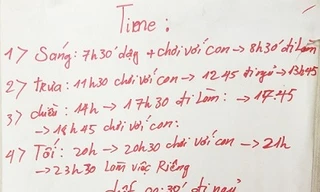 Time:
1) Sáng: 7h30' dậy + chơi với con → 8h30' đi làm
2) trưa: 11h30 chơi với con → 12 45 đi ngủ → 13h45
3) chiều: 14h → 17h30 đi làm: → 17:45
→ 18h45 chơi với con:
4) Tối: 20h → 20h30 chơi với con → 21h
→ 23h30 làm việc Riêng
đi ngủ